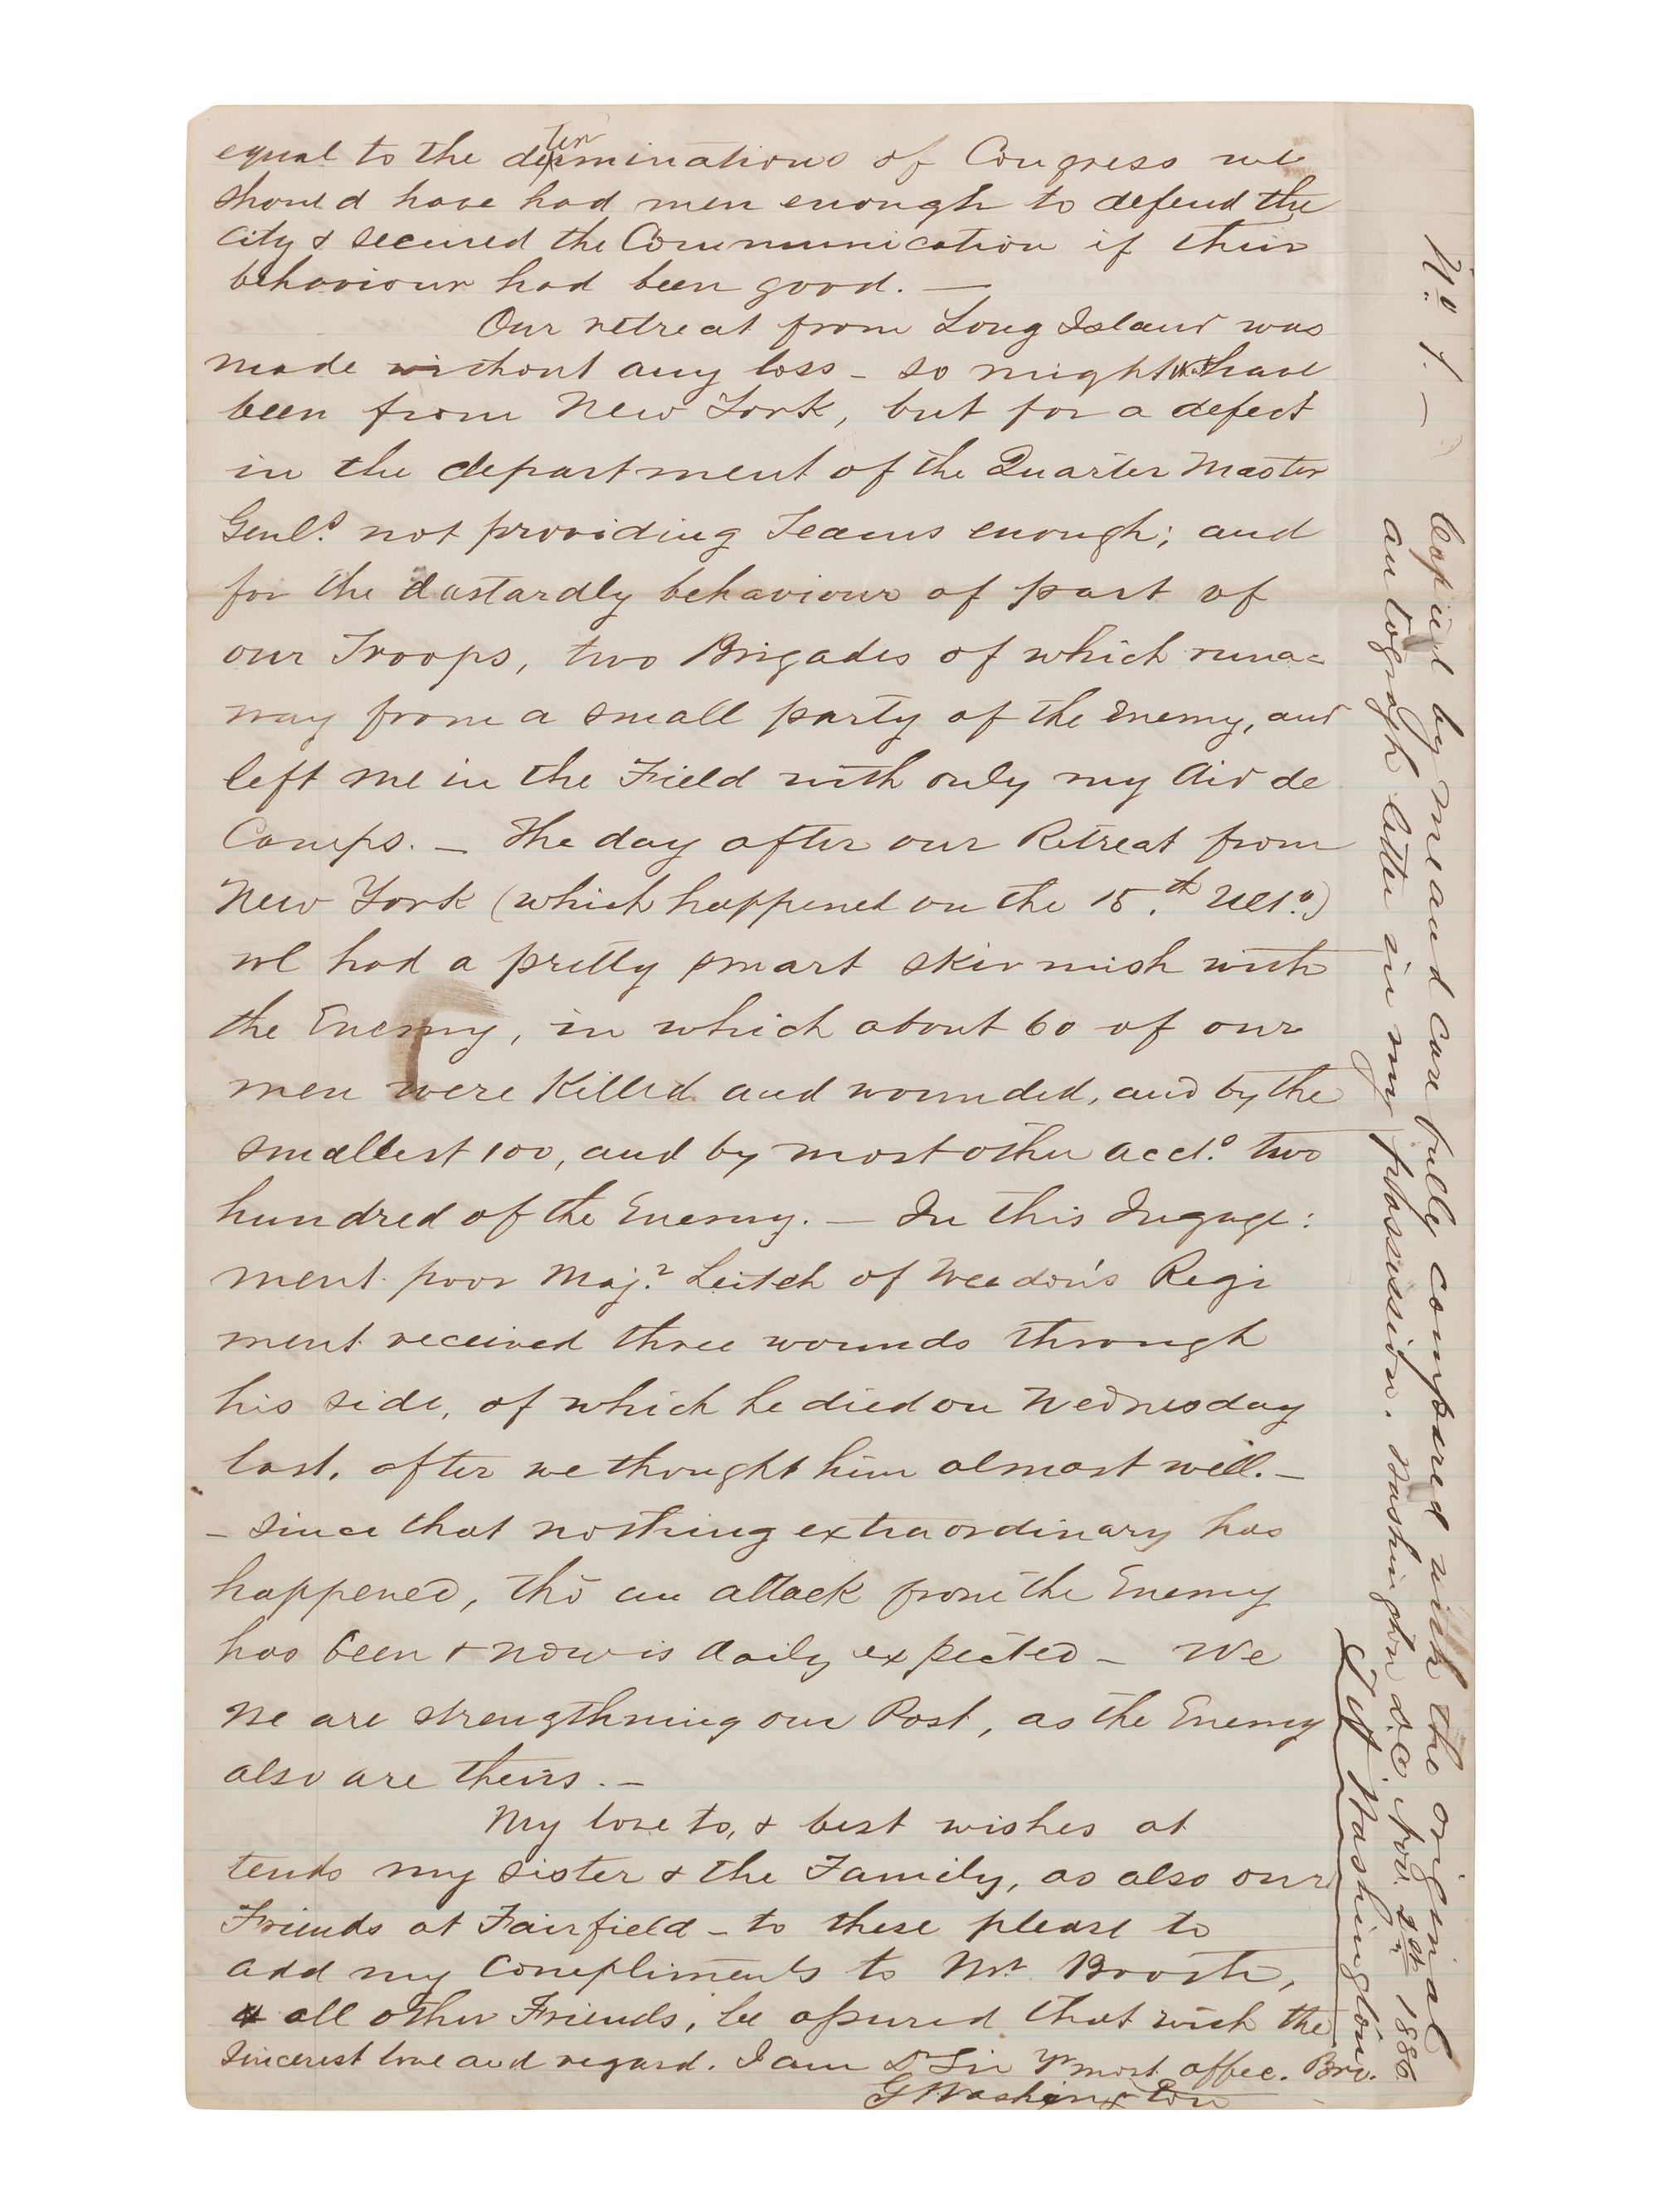 equal to the determinations of Congress we
should have had men enough to defend the
City & secured the Communication if their
behaviour had been good. —
Our retreat from Long Island was
made without any loss – so might it have
been from New York, but for a defect
in the department of the Quarter Master
Genls. not providing Teams enough; and
for the dastardly behaviour of part of
our Troops, two Brigades of which runa=
way from a small party of the Enemy, and
left me in the Field with only my Aid de
Camps. – The day after our Retreat from
New York (which happened on the 15.th Ulto.)
we had a pretty smart skirmish with
the Enemy, in which about 60 of our
men were Killed and wounded, and by the
smallest 100, and by most other acct.s two
hundred of the Enemy. – In this Ingage:
ment poor Maj.r Leitch of Weedon's Regi
ment received three wounds through
his side, of which he died on Wednesday
last, after we thought him almost well. –
– Since that nothing extraordinary has
happened, tho an attack from the Enemy
has been & now is daily expected – We
we are strengthning our Post, as the Enemy
also are theirs. –
My love to, & best wishes at
tends my Sister & the Family, as also our
Friends at Fairfield – to these please to
add my Compliments to Mr. Booth,
& all other Friends, be assured that with the
Sincerest love and regard. I am Dr Sir Yr most affec. Bro.
GWashington
No 1. –
Copied by me and carefully compared with the original
autograph letter in my possession. Washington D.C. Nov. 2nd 1886